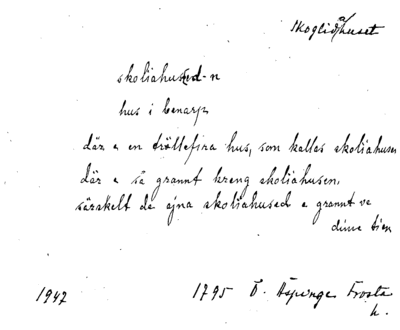 Skoglidahuset
skoliahused -n
hus i Benarp
där e en trällefira hus, som kallas skoliahusen
där e så grannt kreng skoliahusen,
särskelt de ejna skoliahused e grannt ve
dinna tien
1947 1795 Ö. Äspinge Frosta
h.